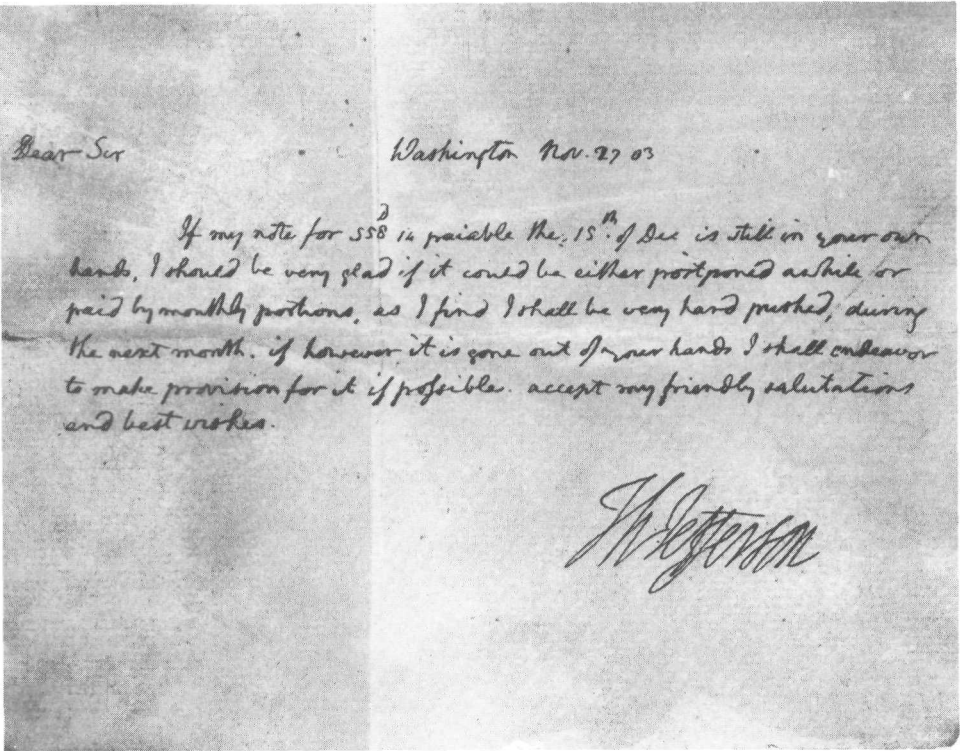 Dear Sir Washington Nov. 27 03
If my note for 558.D 14 paiable the 15th. of Dec is still in your own
hands, I should be very glad if it could be either postponed awhile or
paid by monthly portions, as I find I shall be very hard pushed, during
the next month. if however it is gone out of your hands I shall endeavor
to make provision for it if possible. accept my friendly salutations
and best wishes.
Th Jefferson